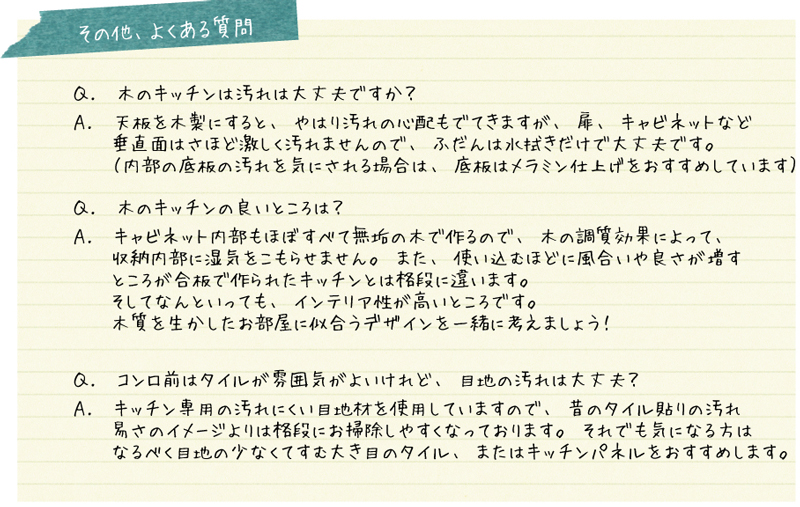 その他、よくある質問
Q. 木のキッチンは汚れは大丈夫ですか?
A. 天板を木製にすると、やはり汚れの心配もでてきますが、扉、キャビネットなど
垂直面はさほど激しく汚れませんので、ふだんは水拭きだけで大丈夫です。
(内部の底板の汚れを気にされる場合は、底板はメラミン仕上げをおすすめしています)
Q. 木のキッチンの良いところは?
A. キャビネット内部もほぼすべて無垢の木で作るので、木の調質効果によって、
収納内部に湿気をこもらせません。また、使い込むほどに風合いや良さが増す
ところが合板で作られたキッチンとは格段に違います。
そしてなんといっても、インテリア性が高いところです。
木質を生かしたお部屋に似合うデザインを一緒に考えましょう!
Q. コンロ前はタイルが雰囲気がよいけれど、目地の汚れは大丈夫?
A. キッチン専用の汚れにくい目地材を使用していますので、昔のタイル貼りの汚れ
易さのイメージよりは格段にお掃除しやすくなっております。それでも気になる方は
なるべく目地の少なくてすむ大き目のタイル、またはキッチンパネルをおすすめします。